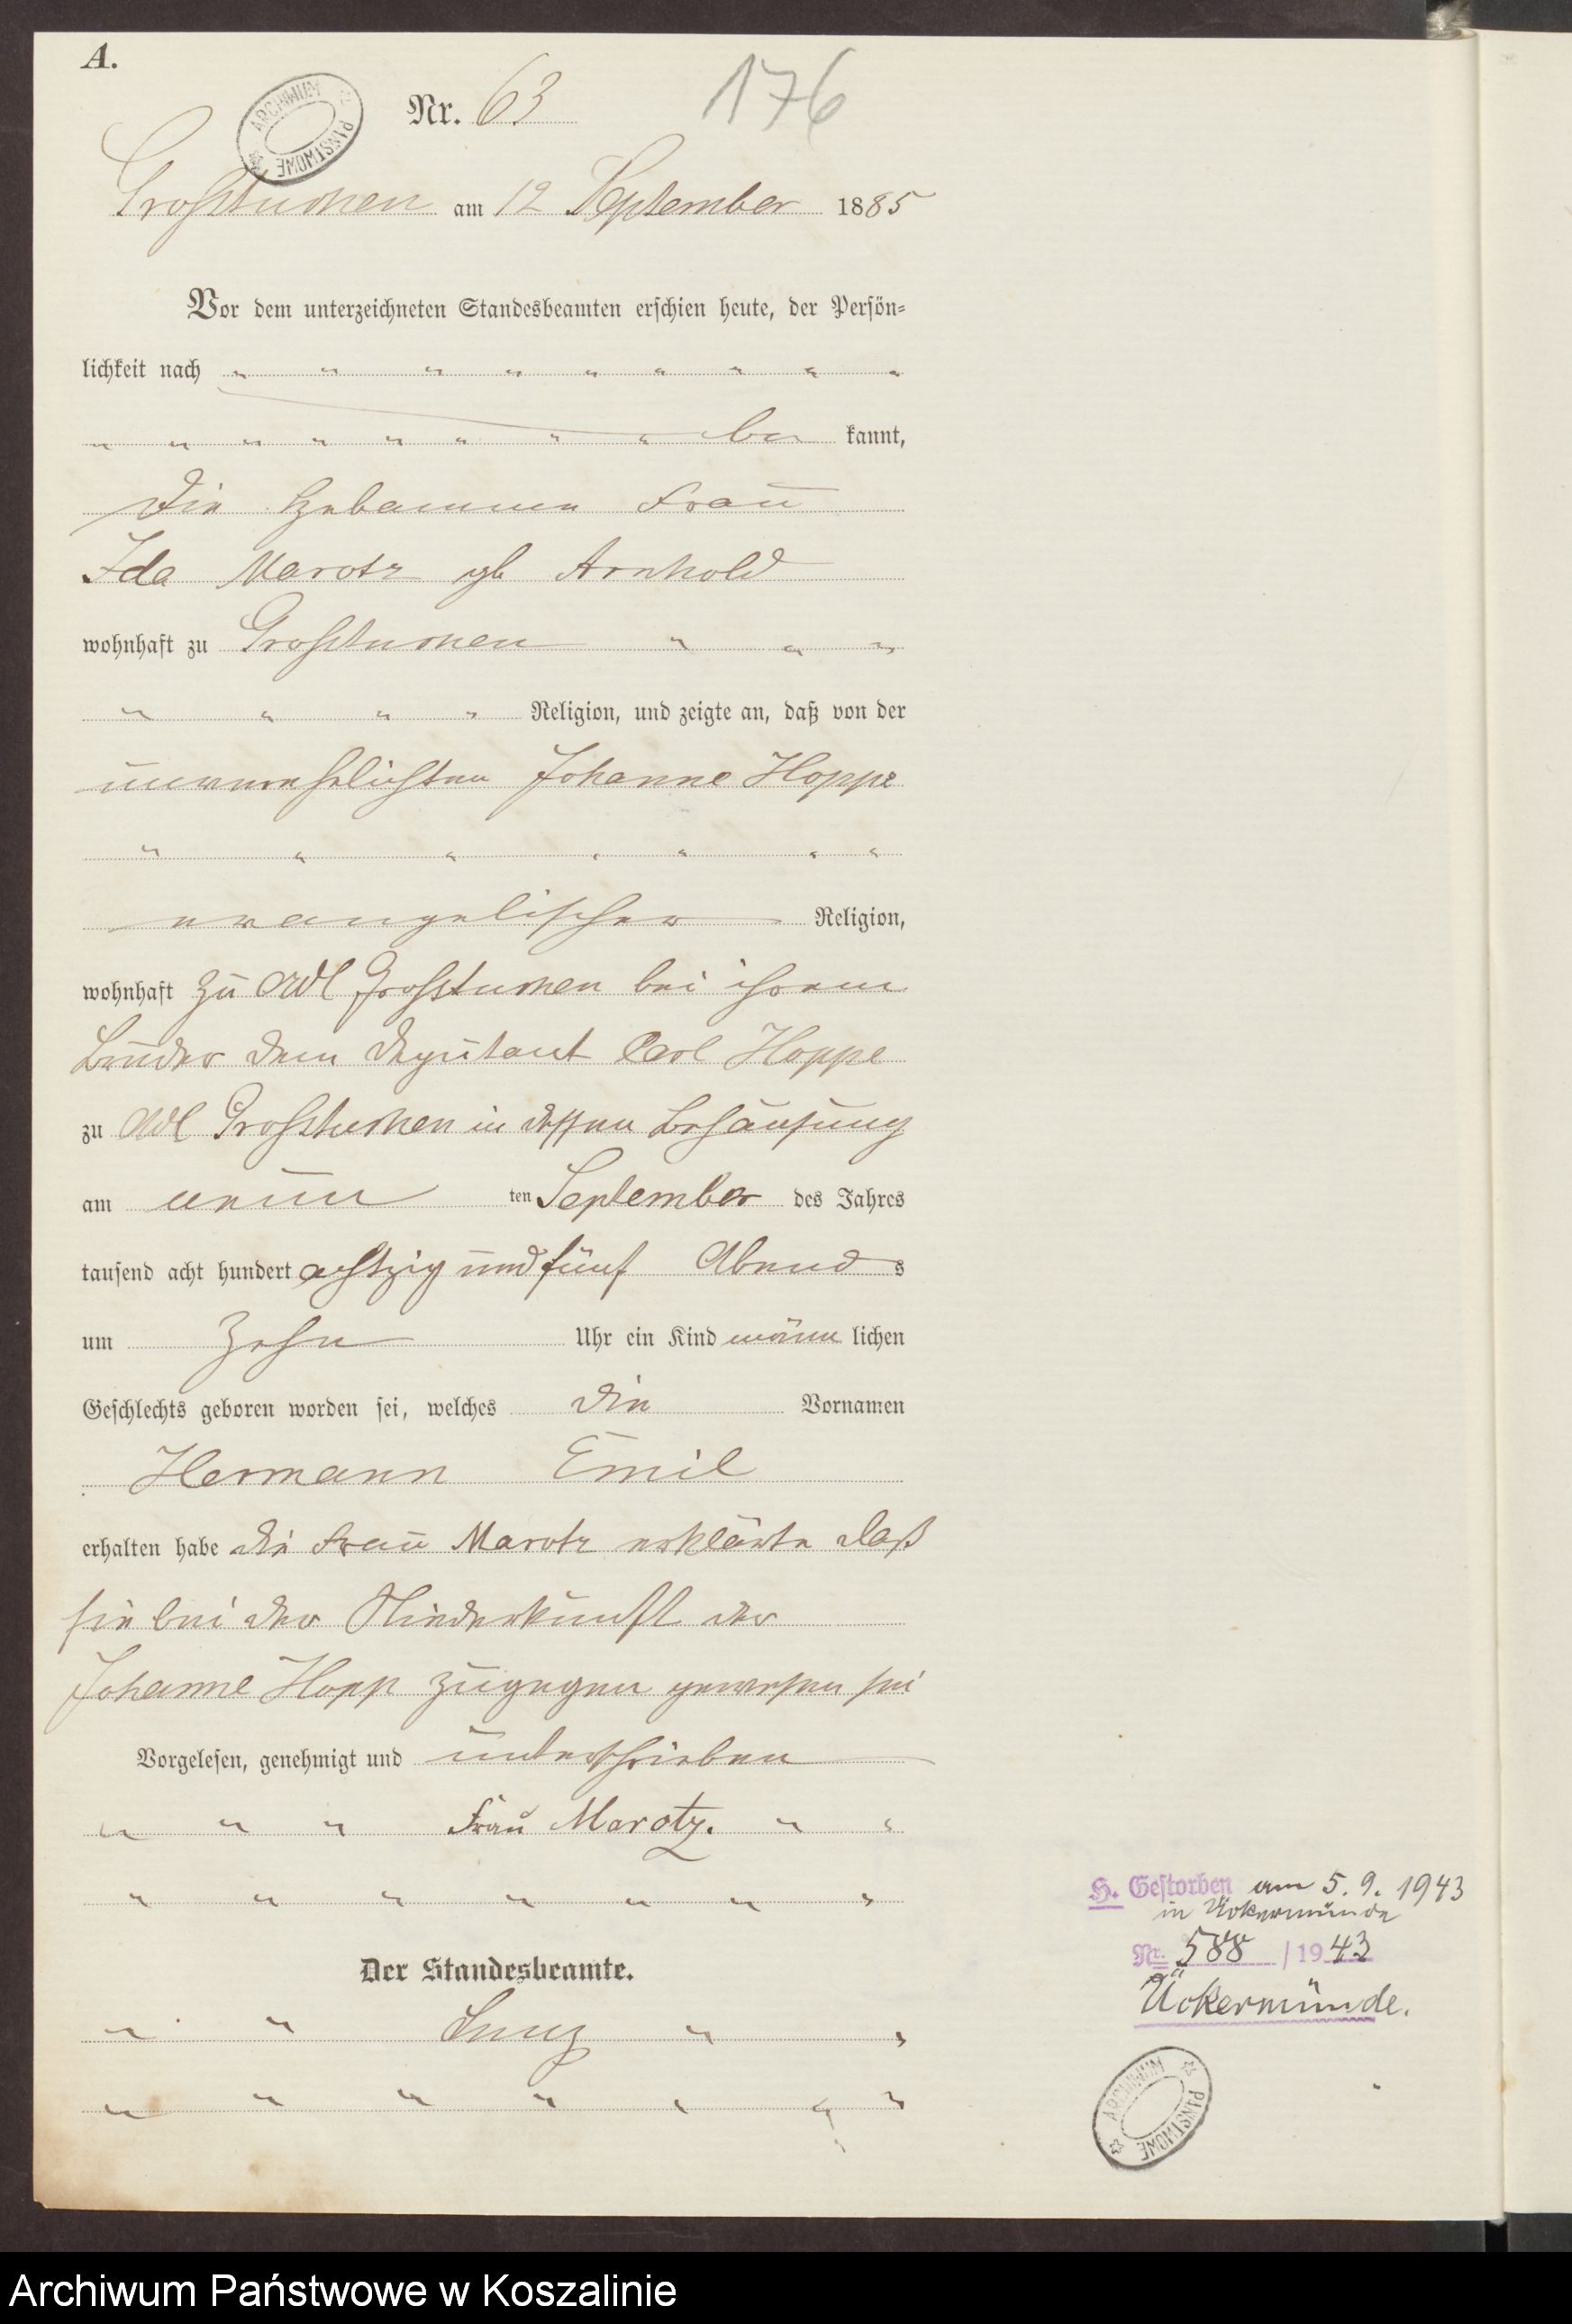 A.
Nr. 63
176
ARCHIWUM PAŃSTWOWE
Großtuchen am 12 September 1885
Vor dem unterzeichneten Standesbeamten erschien heute, der Persön-
lichkeit nach " " " " " " " " "
" " " " " " " " be kannt,
die Hebamme Frau
Ida Marotz gb Arnhold
wohnhaft zu Großtuchen " " "
" " " " Religion, und zeigte an, daß von der
unverehelichten Johanne Hoppe
" " " " " " "
evangelischer Religion,
wohnhaft zu Adl Großtuchen bei ihrem
Bruder dem Deputant Carl Hoppe
zu Adl Großtuchen in dessen Behausung
am neun ten September des Jahres
tausend acht hundert achtzig und fünf Abend s
um Zehn Uhr ein Kind männ lichen
Geschlechts geboren worden sei, welches die Vornamen
Hermann Emil
erhalten habe die Frau Marotz erklärte daß
sie bei der Niederkunft der
Johanne Hopp zugegen gewesen sei
Vorgelesen, genehmigt und unterschrieben
" " " Frau Marotz. " "
" " " " " " "
Der Standesbeamte.
" " " "
" " " " " " "
H. Gestorben am 5. 9. 1943
in Ückermünde
Nr. 588 / 1943
Ückermünde.
ARCHIWUM PAŃSTWOWE
Archiwum Państwowe w Koszalinie